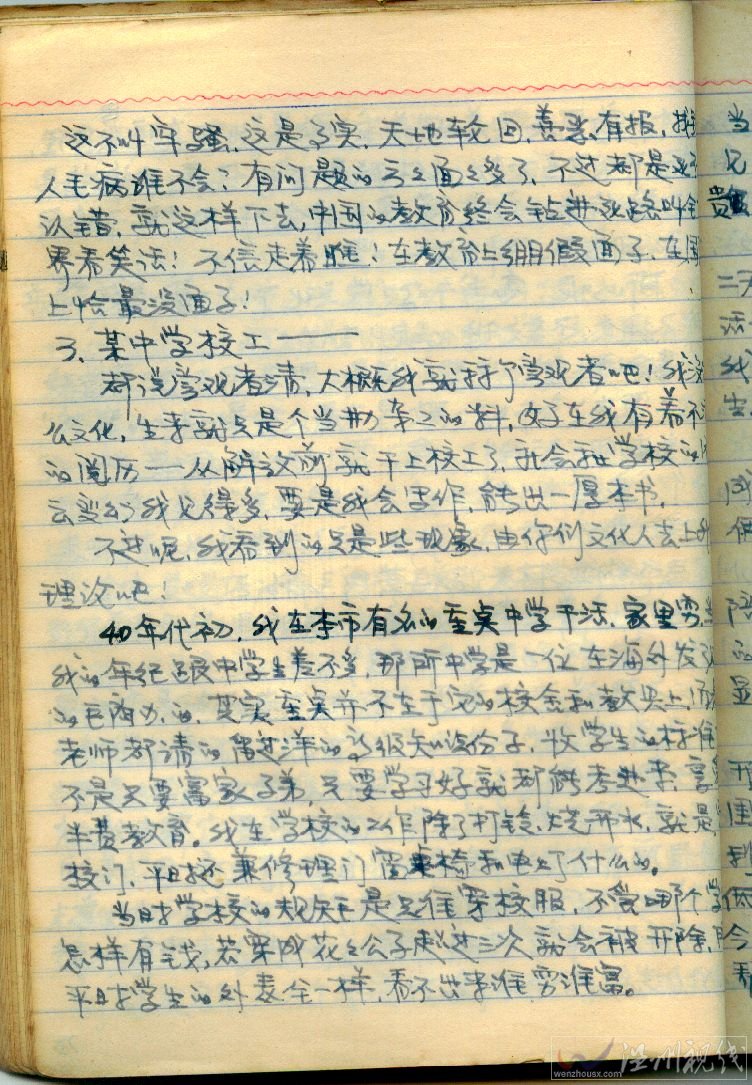 这不叫牢骚，这是事实，天地轮回，善恶有报，挑
人毛病谁不会？有问题的方方面面多了，不过都是死不
认错，就这样下去，中国的教育终会钻进死路叫全
界看笑话！不信走着瞧！在教育上绷假面子，在国
上恰会最没面子！
3、某中学校工——
都说旁观者清，大概我就算个旁观者吧！我没
么文化，生来就只是个当勤杂工的料，好在我有着不
的阅历——从解放前就干上校工了，社会和学校的
云变幻我见得多，要是我会写作，能出一厚本书。
不过呢，我看到的只是些现象，由你们文化人去上升
理论吧！
40年代初，我在本市有名的至臬中学干活，家里穷，
我的年纪跟中学生差不多，那所中学是一位在海外发
的老商办的，其实至臬并不在于它的校舍和教具上，而
老师都请的留过洋的高级知识份子，收学生的标准
不是只要富家子弟，只要学习好就都能考进来，享
半费教育。我在学校的工作除了打铃、烧开水，就是
校门，平时还兼修理门窗桌椅和电灯什么的。
当时学校的规矩是只准穿校服，不管哪个学
怎样有钱，若穿成花花公子超过三次就会被开除，
平时学生的外表全一样，看不出来谁穷谁富。
当
兄
贵
二天
活
我
生
陪
的
显
开
但
到
低
今
看
温州视线
wenzhousx.com